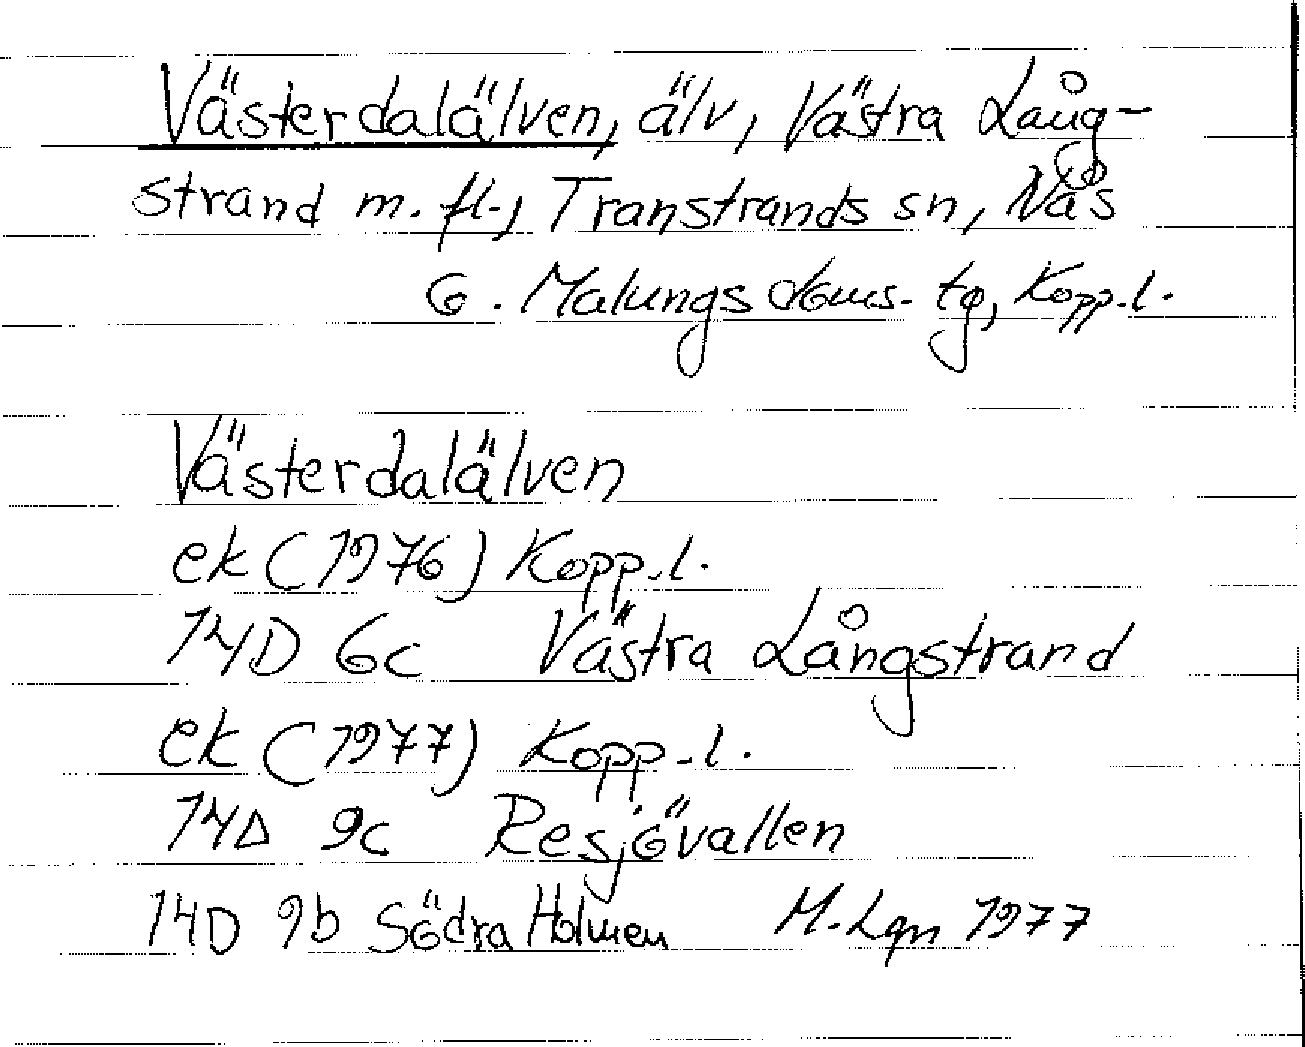 Västerdalälven, älv, Västra Lång-
strand m. fl., Transtrands sn, Nås
o. Malungs doms. tg, Kopp.l.
Västerdalälven
ek (1976) Kopp.l.
14D 6c Västra Långstrand
ek (1977) Kopp.l.
14D 9c Resjövallen
14D 9b Södra Holmen M.Lgn 1977